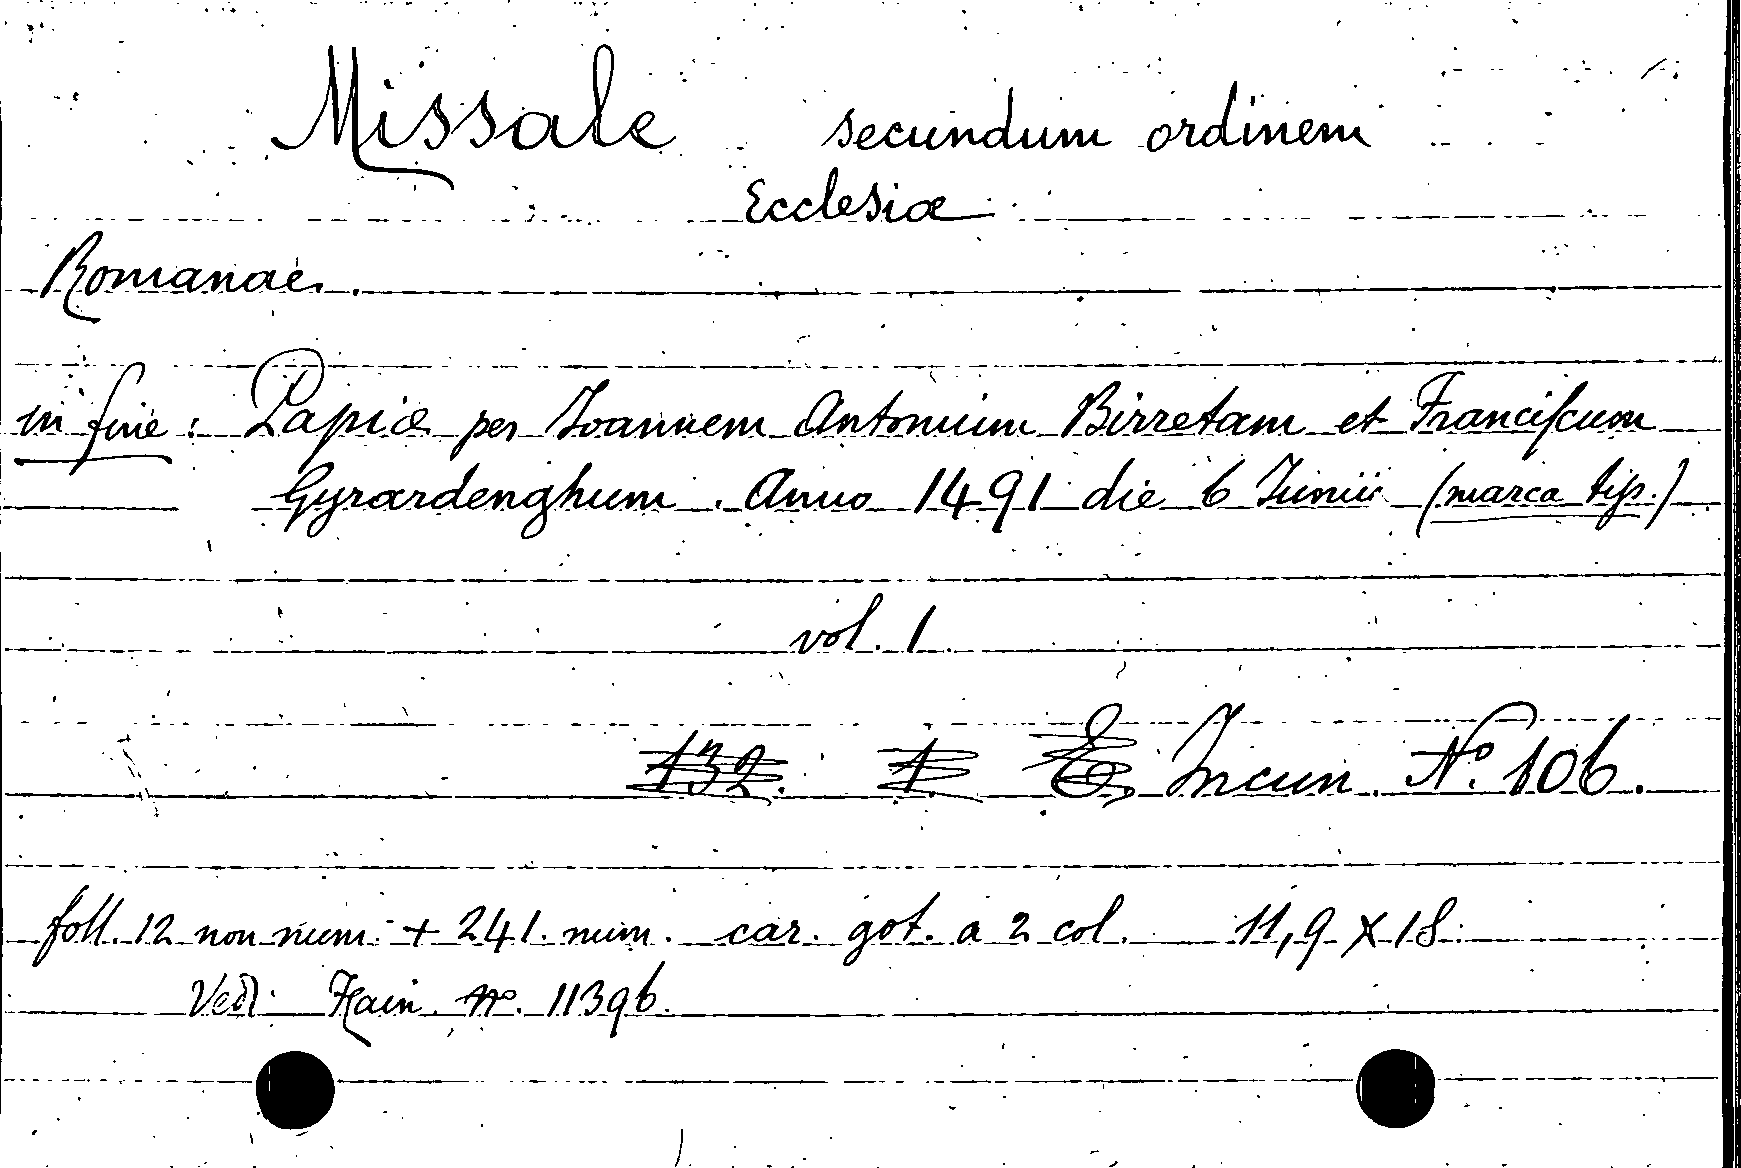 Missale secundum ordinem
Ecclesiæ
Romanae.
in fine: Papiæ per Ioannem Antonium Birretam et Franciſcum
Gyrardenghum. Anno 1491 die 6 Iunii (marca tip.)
vol. 1
132. 1. E, Incun. Nº. 106.
foll. 12 non num. + 241. num. car. got. a 2 col. 11,9 X 18.
Vedi Hain nº. 11396.